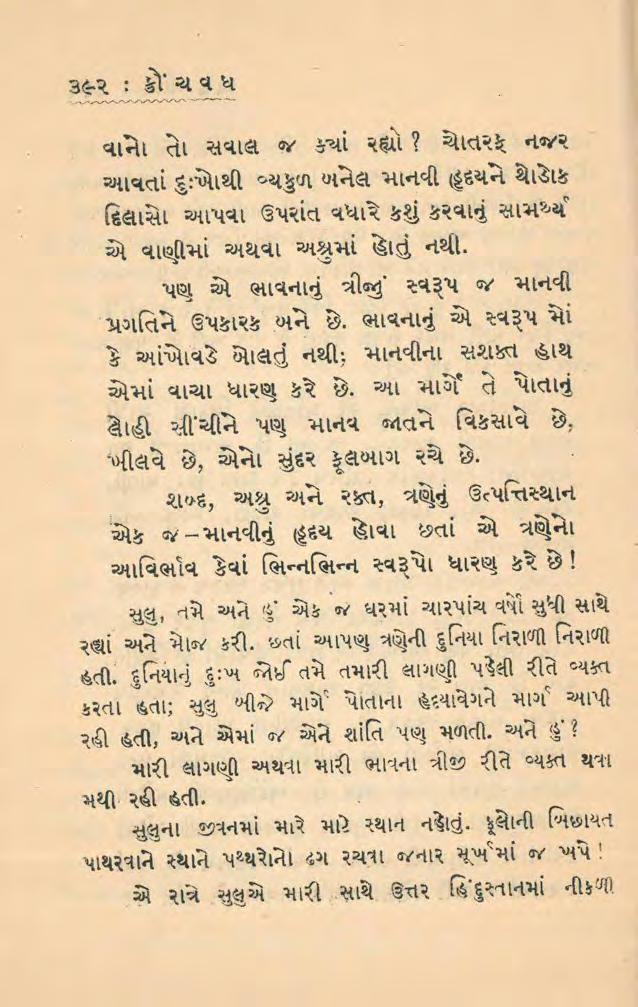 ૩૯૨ : ક્રૌંચવધ
વાનો તો સવાલ જ ક્યાં રહ્યો ? ચોતરફ નજર
આવતાં દુઃખોથી વ્યકુળ બનેલ માનવી હૃદયને થોડોક
દિલાસો આપવા ઉપરાંત વધારે કશું કરવાનું સામર્થ્ય
એ વાણીમાં અથવા અશ્રુમાં હોતું નથી.
પણ એ ભાવનાનું ત્રીજું સ્વરૂપ જ માનવી
પ્રગતિને ઉપકારક બને છે. ભાવનાનું એ સ્વરૂપ મોં
કે આંખોવડે બોલતું નથી; માનવીના સશક્ત હાથ
એમાં વાચા ધારણ કરે છે. આ માર્ગે તે પોતાનું
લોહી સીંચીને પણ માનવ જાતને વિકસાવે છે,
ખીલવે છે, એનો સુંદર ફૂલબાગ રચે છે.
શબ્દ, અશ્રુ અને રક્ત, ત્રણેનું ઉત્પત્તિસ્થાન
એક જ – માનવીનું હૃદય હોવા છતાં એ ત્રણેનો
આવિર્ભાવ કેવાં ભિન્નભિન્ન સ્વરૂપો ધારણ કરે છે !
સુલુ, તમે અને હું એક જ ઘરમાં ચારપાંચ વર્ષો સુધી સાથે
રહ્યાં અને મોજ કરી. છતાં આપણ ત્રણેની દુનિયા નિરાળી નિરાળી
હતી. દુનિયાનું દુઃખ જોઈ તમે તમારી લાગણી પહેલી રીતે વ્યક્ત
કરતા હતા; સુલુ બીજે માર્ગે પોતાના હૃદયાવેગને માર્ગ આપી
રહી હતી, અને એમાં જ એને શાંતિ પણ મળતી. અને હું ?
મારી લાગણી અથવા મારી ભાવના ત્રીજી રીતે વ્યક્ત થવા
મથી રહી હતી.
સુલુના જીવનમાં મારે માટે સ્થાન નહોતું. ફૂલોની બિછાયત
પાથરવાને સ્થાને પથ્થરોનો ઢગ રચવા જનાર મૂર્ખમાં જ ખપે !
એ રાત્રે સુલુએ મારી સાથે ઉત્તર હિંદુસ્તાનમાં નીકળી